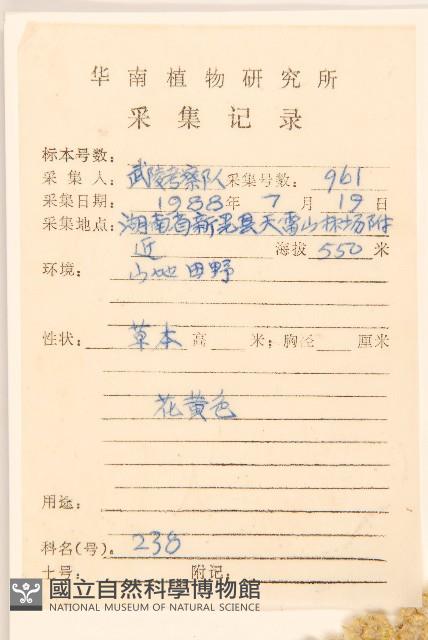 华南植物研究所
采集记录
标本号数:
采集人: 武陵考察队 采集号数: 961
采集日期: 1988年 7月 19日
采集地点: 湖南省新晃县天雷山林场附
近 海拔 550 米
环境: 山地田野
性状: 草本 高 米; 胸径 厘米
花黄色
用途:
科名(号). 238
土号: 附记:
國立自然科學博物館
NATIONAL MUSEUM OF NATURAL SCIENCE